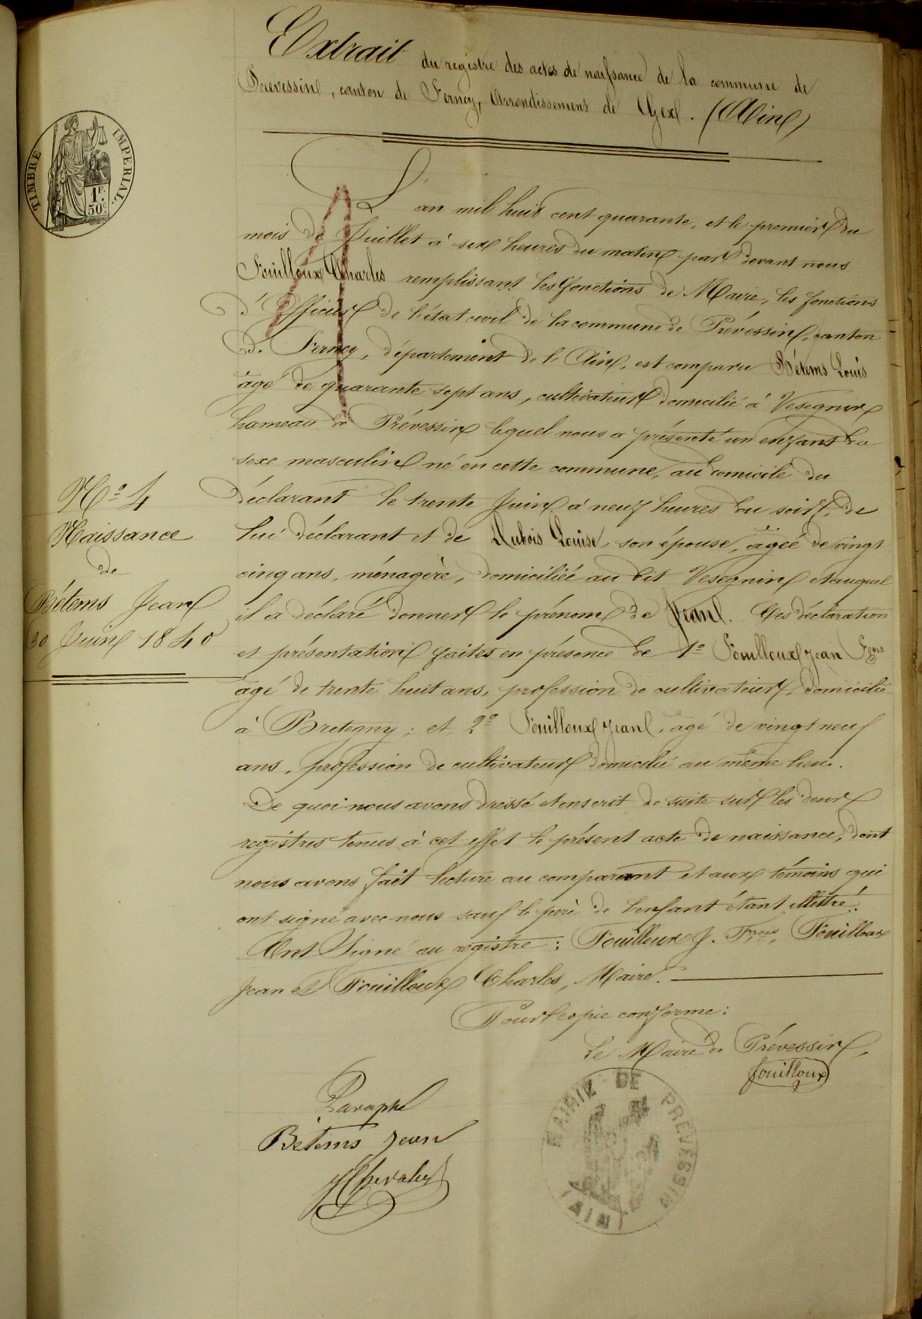 Extrait du registre des actes de naissance de la commune de
Prévessin, canton de Ferney, Arrondissement de Gex. (Ain)
TIMBRE IMPERIAL
1F.
50c.
L'an mil huit cent quarante, et le premier du
mois de Juillet à six heures du matin par devant nous
Fouilloux Charles remplissant les fonctions de Maire, les fonctions
d'Officier de l'état civil de la commune de Prévessin, canton
de Ferney, département de l'Ain, est comparu Bétems Louis
âgé de quarante sept ans, cultivateur domicilié à Vesegnin
hameau de Prévessin lequel nous a présenté un enfant du
sexe masculin né en cette commune, au domicile du
déclarant le trente Juin à neuf heures du soir, de
lui déclarant et de Dubois Louise son épouse, âgée de vingt
cinq ans, ménagère, domiciliée au dit Vesegnin et auquel
il a déclaré donner le prénom de Jean. Ces déclaration
et présentation faites en présence de 1o Fouilloux Jean Fçois
âgé de trente huit ans, profession de cultivateur, domicilié
à Bretigny; et 2o Fouilloux Jean, âgé de vingt neuf
ans, profession de cultivateur domicilié au même lieu.
De quoi nous avons dressé et inscrit de suite sur les deux
registres tenus à cet effet le présent acte de naissance, dont
nous avons fait lecture au comparant et aux témoins qui
ont signé avec nous sauf le père de l'enfant étant illettré.
Ont signé au registre: Fouilloux J. Fçois, Fouilloux
Jean et Fouilloux Charles, Maire.
No 4
Naissance
de
Bétems Jean
30 Juin 1840
Pour copie conforme:
Le Maire de Prévessin,
Fouilloux
MAIRIE DE PREVESSIN
(AIN)
Paraphé
Bétems Jean
Chevalier